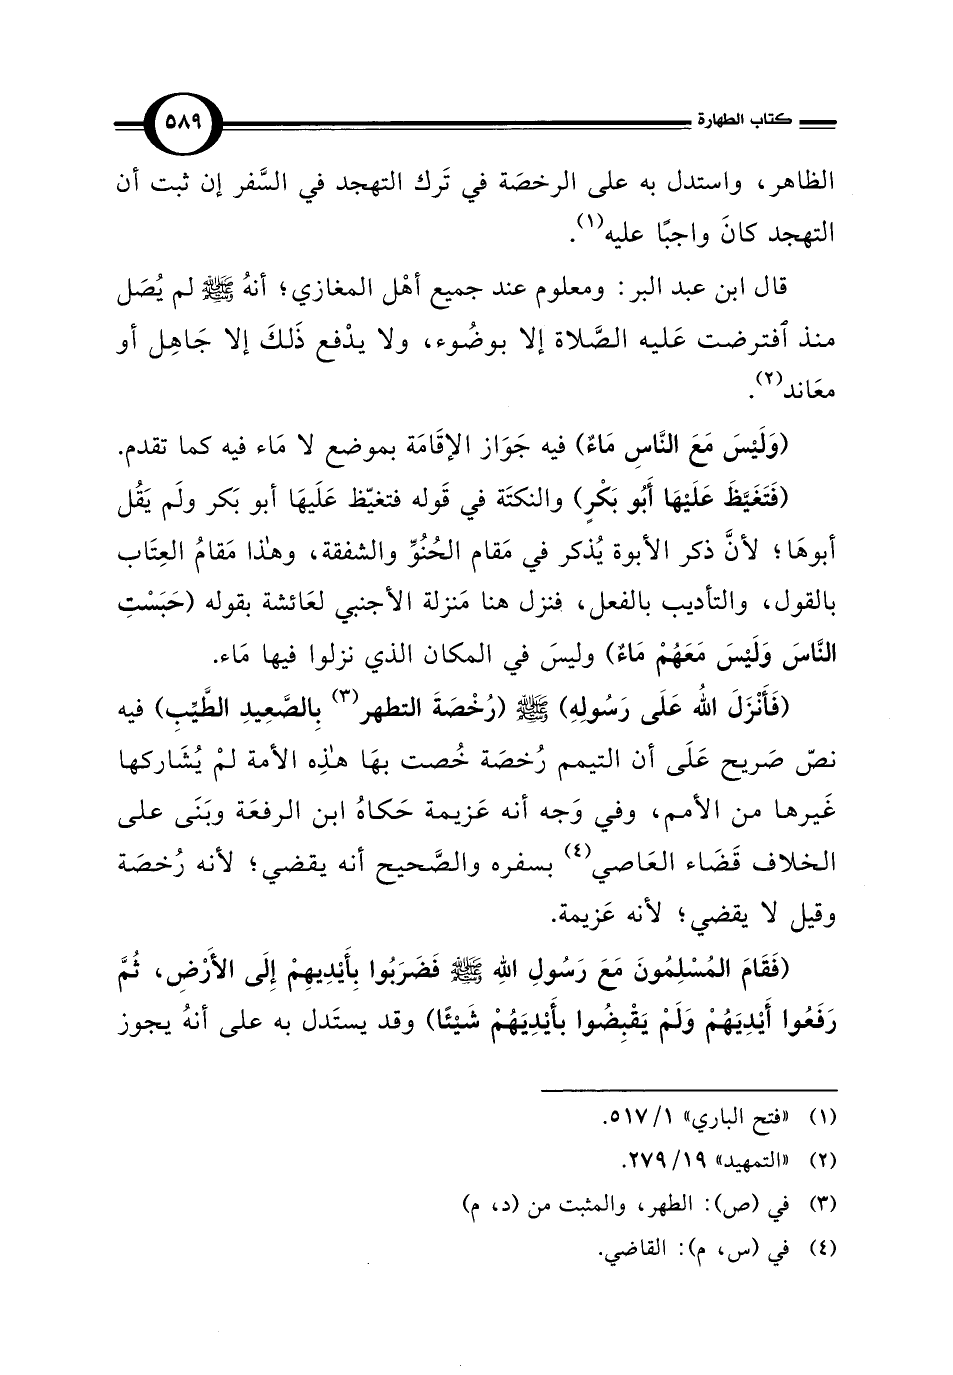 كتاب الطهارة ٥٨٩
الظاهر، واستدل به على الرخصَة في تَرك التهجد في السَّفر إن ثبت أن
التهجد كانَ واجبًا عليه(١).
قال ابن عبد البر: ومعلوم عند جميع أهْل المغازي؛ أنهُ ﷺ لم يُصَل
منذ ٱفترضت عَليه الصَّلاة إلا بوضُوء، ولا يدْفع ذَلكَ إلا جَاهِل أو
معَاند(٢).
(وَلَيْسَ مَعَ النَّاسِ مَاءٌ) فيه جَوَاز الإقَامَة بموضع لا مَاء فيه كما تقدم.
(فَتَغَيَّظَ عَلَيْهَا أَبُو بَكْرٍ) والنكتَة في قَوله فتغيّظ عَلَيهَا أبو بَكر ولَم يَقُل
أبوهَا؛ لأنَّ ذكر الأبوة يُذكر في مَقام الحُنُوِّ والشفقة، وهذا مَقامُ العِتَاب
بالقول، والتأديب بالفعل، فنزل هنا مَنزلة الأجنبي لعَائشة بقوله (حَبَسْتِ
النَّاسَ وَلَيْسَ مَعَهُمْ مَاءٌ) وليسَ في المكان الذي نزلوا فيها مَاء.
(فَأَنْزَلَ اللهُ عَلَى رَسُولِهِ) ﷺ (رُخْصَةَ التطهر(٣) بِالصَّعِيدِ الطَّيِّبِ) فيه
نصّ صَريح عَلَى أن التيمم رُخصَة خُصت بهَا هذِه الأمة لمْ يُشَاركها
غَيرها من الأمم، وفي وَجه أنه عَزيمة حَكاهُ ابن الرفعَة وبَنَى على
الخلاف قَضَاء العَاصي(٤) بسفره والصَّحيح أنه يقضي؛ لأنه رُخصَة
وقيل لا يقضي؛ لأنه عَزيمة.
(فَقَامَ المُسْلِمُونَ مَعَ رَسُولِ اللهِ ﷺ فَضَرَبُوا بِأَيْدِيهِمْ إِلَى الأَرْضِ، ثُمَّ
رَفَعُوا أَيْدِيَهُمْ وَلَمْ يَقْبِضُوا بأَيْدِيَهُمْ شَيْئًا) وقد يستَدل به على أنهُ يجوز
(١) «فتح الباري» ١/ ٥١٧.
(٢) «التمهيد» ١٩/ ٢٧٩.
(٣) في (ص): الطهر، والمثبت من (د، م)
(٤) في (س، م): القاضي.